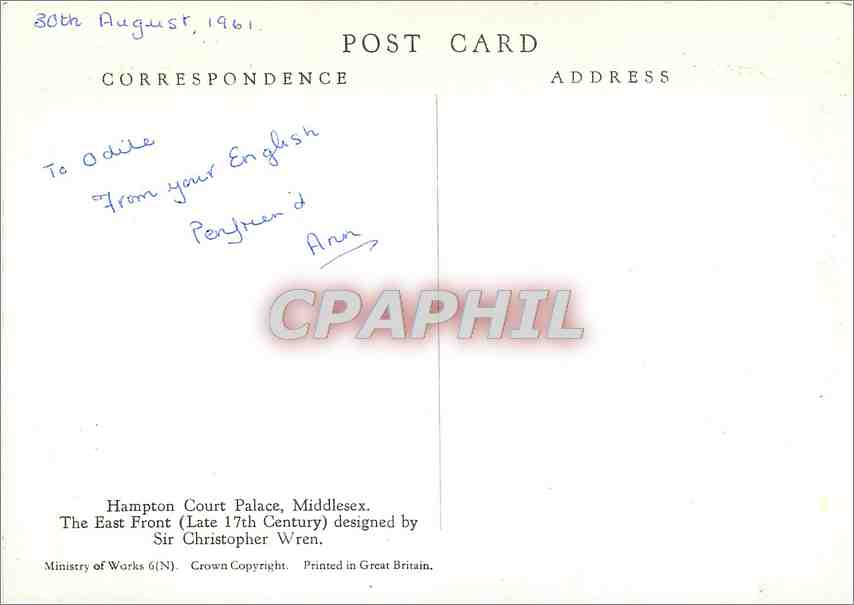 30th August, 1961.
POST CARD
CORRESPONDENCE
ADDRESS
To Odile
From your English
Penfriend
Ann
CPAPHIL
Hampton Court Palace, Middlesex.
The East Front (Late 17th Century) designed by
Sir Christopher Wren.
Ministry of Works 6(N). Crown Copyright. Printed in Great Britain.